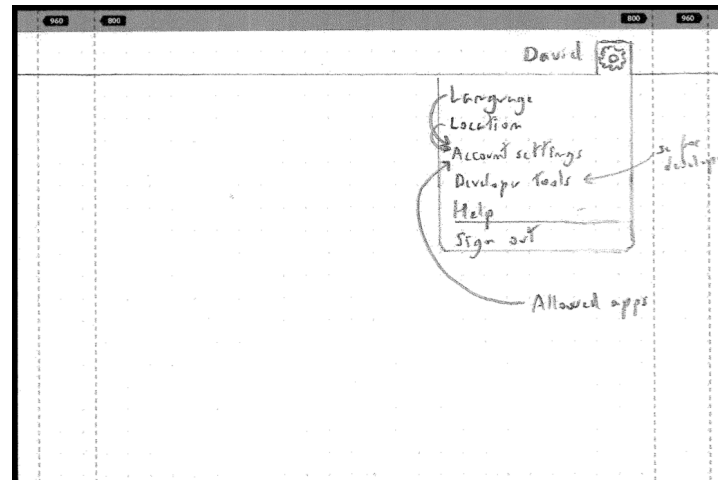 960 800 800 960
David
Language
Location
Account settings
Developer tools
Help
Sign out
Allowed apps